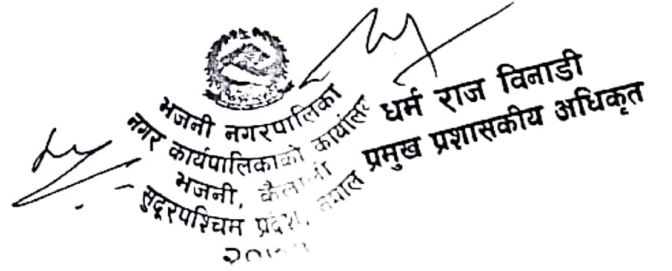 भजनी नगरपालिका
नगर कार्यपालिकाको कार्यालय
भजनी, कैलाली
सुदूरपश्चिम प्रदेश, नेपाल
धर्म राज विनाडी
प्रमुख प्रशासकीय अधिकृत